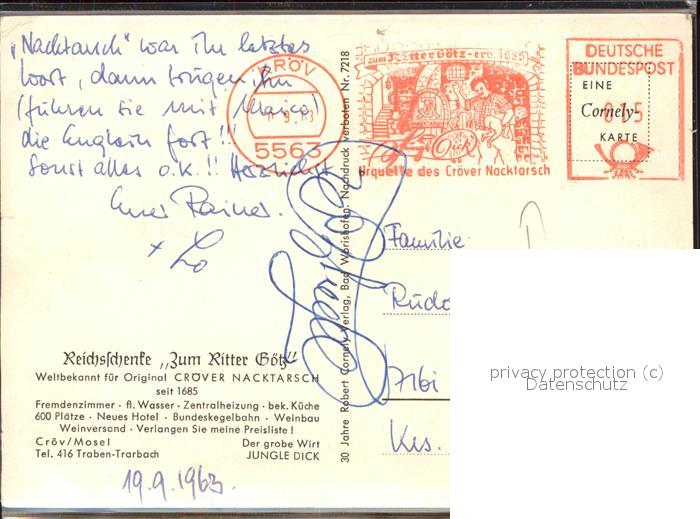 „Nacktarsch" war ihr letztes
Wort, dann trugen ihn
(führen sie mit Maico)
die Englein fort!!!
Sonst alles o.k.!! Herzlichst
Euer Rainer.
+ Lo
Reichsschenke „Zum Ritter Götz"
Weltbekannt für Original CRÖVER NACKTARSCH
seit 1685
Fremdenzimmer · fl. Wasser · Zentralheizung · bek. Küche
600 Plätze · Neues Hotel · Bundeskegelbahn · Weinbau
Weinversand · Verlangen Sie meine Preisliste!
Cröv/Mosel Der grobe Wirt
Tel. 416 Traben-Trarbach JUNGLE DICK
19.9.1963.
30 Jahre Robert Cornely Verlag, Bad Wörishofen. Nachdruck verboten Nr. 7218
KRÖV
5563
zum Ritter Götz - erb. 1685
Urquelle des Cröver Nacktarsch
DEUTSCHE
BUNDESPOST
EINE
Cornely-
KARTE
Familie
Rudo
Kes.
privacy protection (c)
Datenschutz